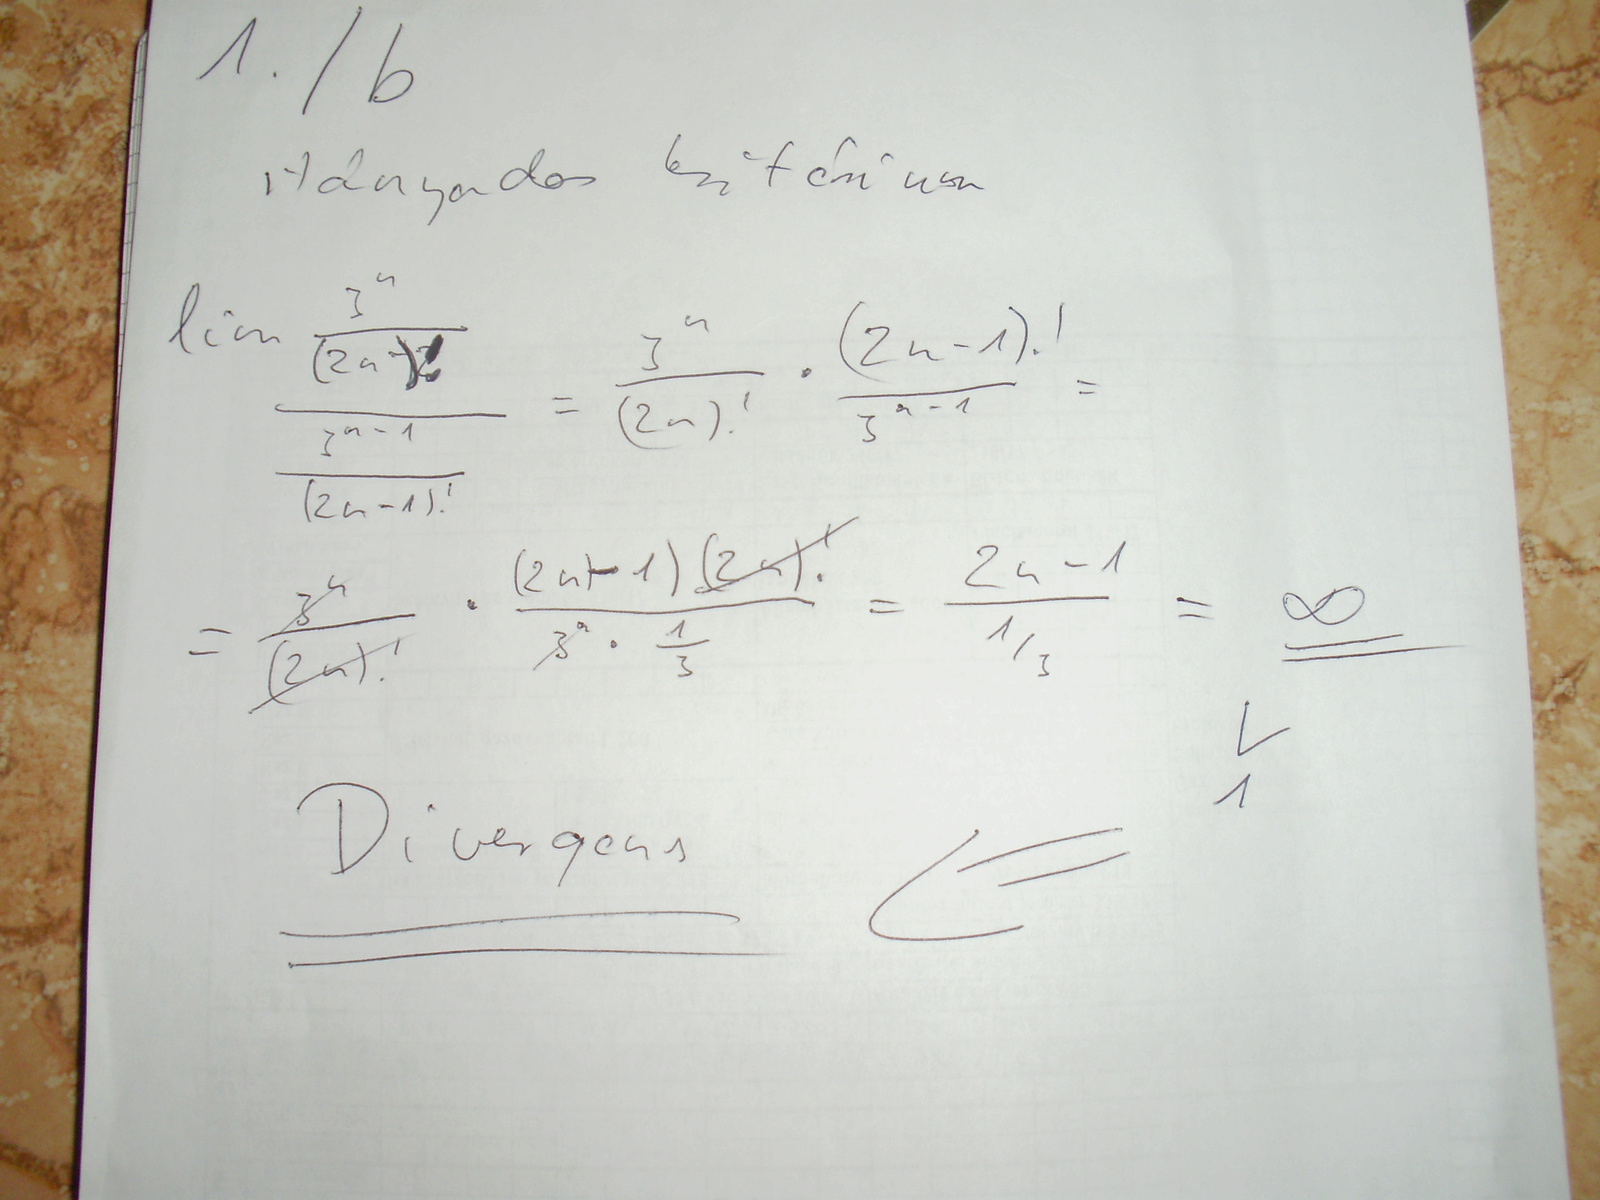 1./b
Hányados kritérium
lim 3^n/(2n)! / 3^(n-1)/(2n-1)! = 3^n/(2n)! · (2n-1)!/3^(n-1) =
= 3^n/(2n)! · (2n-1)(2n)!/3^n · 1/3 = 2n-1/1/3 = ∞
∨
1
Divergens ⇐